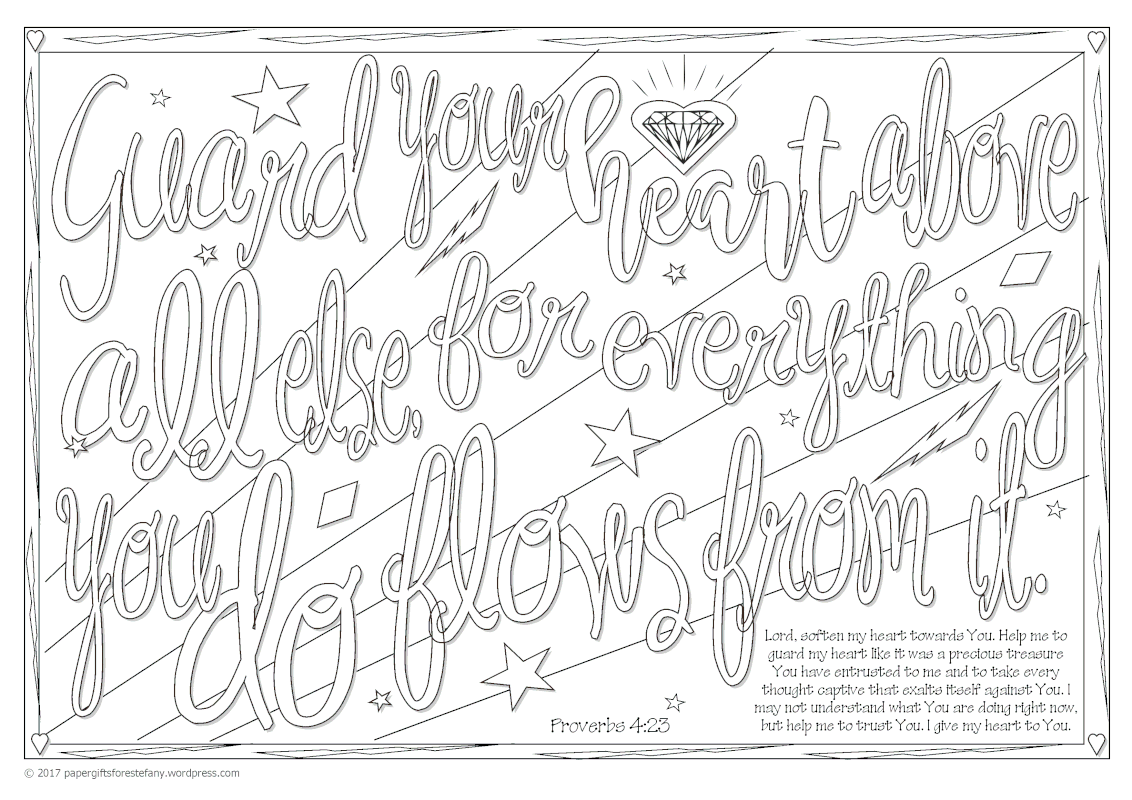 Guard your heart above
all else, for everything
you do flows from it.
Lord, soften my heart towards You. Help me to
guard my heart like it was a precious treasure
You have entrusted to me and to take every
thought captive that exalts itself against You. I
may not understand what You are doing right now,
but help me to trust You. I give my heart to You.
Proverbs 4:23
© 2017 papergiftsforestefany.wordpress.com